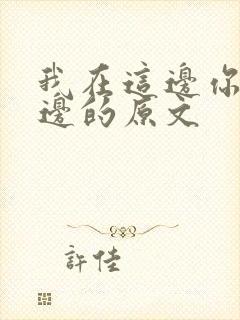 我在這邊你
邊的原文
許佳